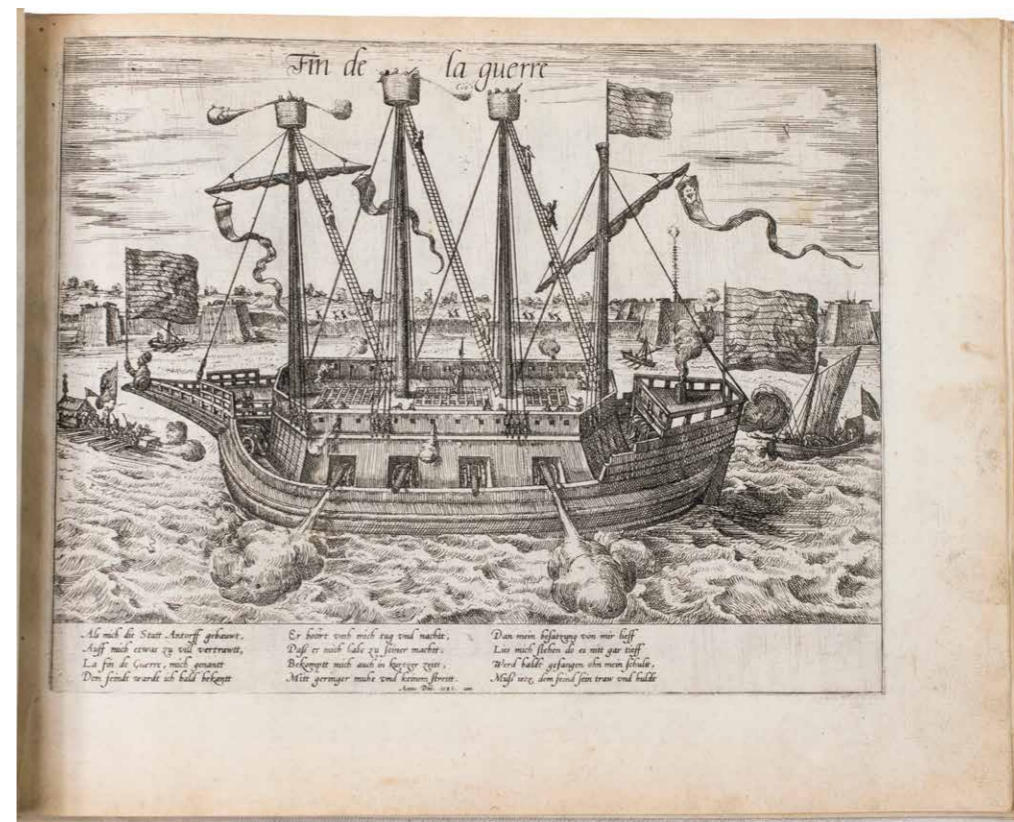 Fin de la guerre
Als mich die Statt Antorff gebauwt,
Auff mich etwas zu vill vertrawtt,
La fin de Guerre, mich genantt
Dem feindt wardt ich bald bekantt
Er bourt vmb mich tag vnd nachtt,
Daß er mich habe zu seiner machtt.
Bekomptt mich auch in kurtzer zeitt,
Mitt geringer muhe vnd keinem streitt.
Dan mein besatzung von mir lieff
Lies mich stehen do es nitt gar tieff
Werd baldt gefangen ohn mein schuldt,
Muß ietz dem feind sein traw vnd huldt
Anno Dni.